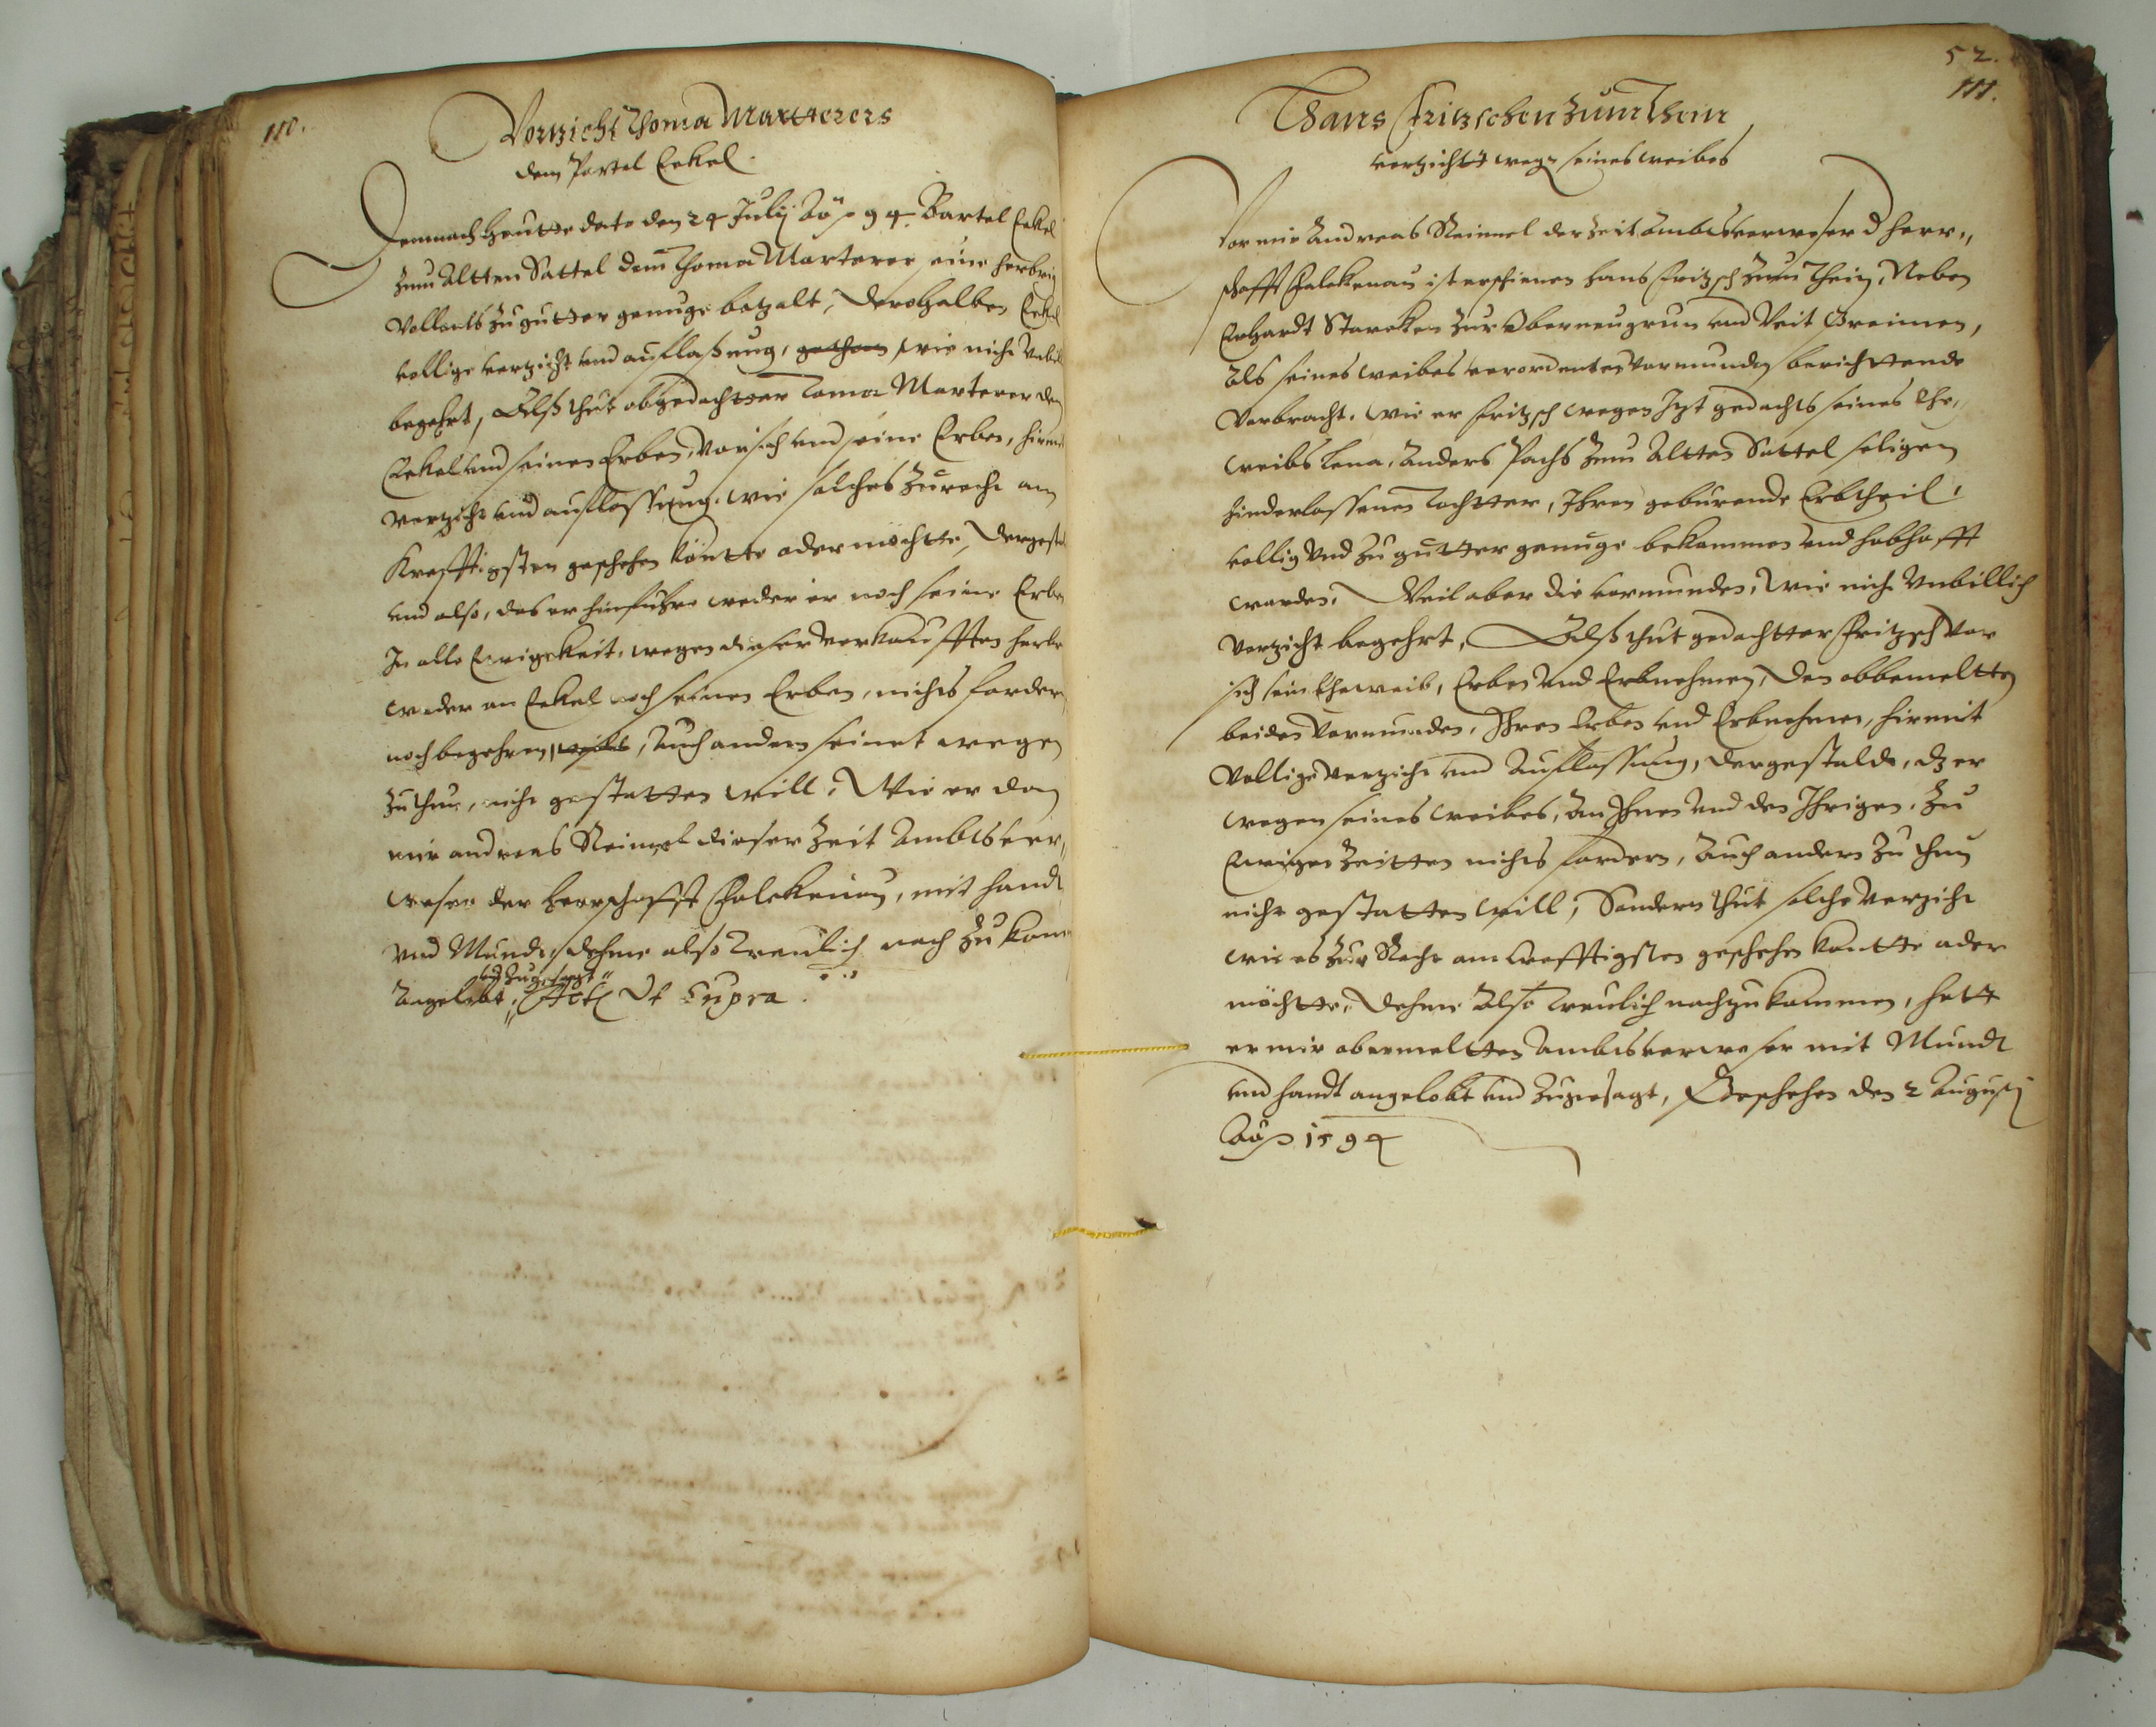 110.
Vortzicht Thoma Marterers
dem Partel Eckel.
Demnach heutte dato den 24 Julij Ao 94. Bartel Eckel
zum Altten Sattel dem Thoma Marterer seine herbrig
Vollents zu gutter genuge betzalt, Derohalben Eckel
vollige vertzicht vnd aufflaßung, gethan, wie nicht Vnbil
begehrt, Alß thut obgedachtter Toma Marterer dem
Eckel vnd seinen Erben, vor sich vnd seine Erben, hirmit
vertzicht vnd aufflassung. wie solches zu recht am
Krefftigsten geschehen köntte oder möchtte, Dergestal
vnd also, das er hinfuhro weder er noch seine Erben
In alle Ewigkeit, wegen dieser verkaufften herbr
weder an Eckel noch seinen Erben, nichts fordern,
noch begehren, Auch andern seinet wegen
zu thun, nicht gestatten will, Wie er dan
mir andreas Steimel dieser Zeit Ambtsver„
weser der herrschafft Falckenau, mit handt
vnd Mundt, Dehme also treulich nach zu kom
vnd zugesagt
Angelobt, Acta Vt Supra.
52.
111.
Hans Fritzschen zum Thein
vertzichtt wegen seines weibes
Vor mir Andreas Steimel der Zeit Ambtsverweser d herr„
schafft Falckenau ist erschienen hans Fritzsch zum Thein, Neben
Erhardt Starcken zur Oberneugrun vnd Veit Greimen,
Als seines weibes verordenten Vormunden berichttende
Vorbracht. wie er Fritzsch wegen Itzt gedachts seines Ehe„
weibs Lena, Anders Pachs zum Altten Sattel seligen
hinderlassenen Tochtter, Ihren geburende Erbtheil,
vollig Vnd zu gutter genuge bekommen vnd habhafft
worden, Weil aber die vormunden, wie nicht Vnbillich
Vertzicht begehrt, Alß thut gedachtter Fritzsch vor
sich sein Eheweib, Erben vnd Erbnehmen, Den obbemeltten
beiden Vormunden, Ihren Erben vnd Erbnehmen, hirmit
Vollige Vertzicht vnd Aufflassung, Dergestaldt, dz er
wegen seines weibes, An Ihnen vnd den Ihrigen, zu
Ewigen Zeitten nichts fordern, Auch andern zu thun
nicht gestatten will, Sondern thut solche Vertzicht
wie es zu Recht am krefftigsten geschehen kontte oder
möchtte, Dehme Also treulich nachzukommen, hatt
er mir obermeltten Ambtsverweser mit Mundt
vnd handt angelobt vnd zugesagt, Geschehen den 2 Augusti
Ao 1594